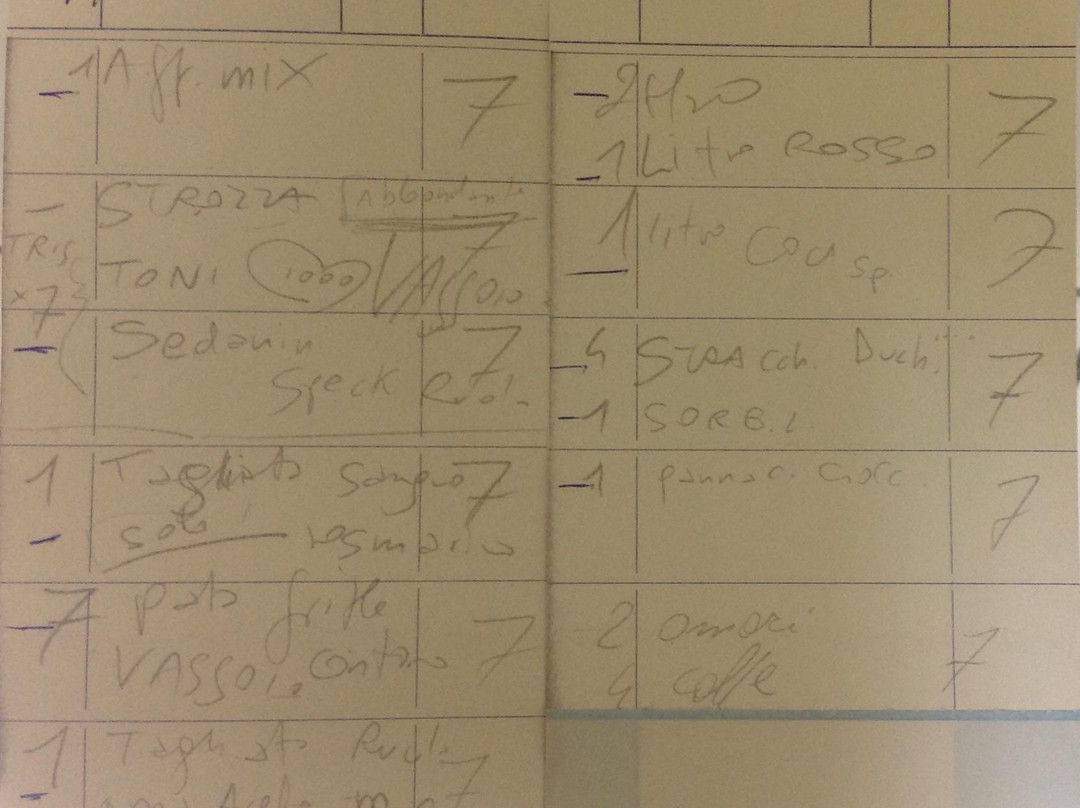 1 Aff. mix 7
STROZZA Abbondante 7
TRIS TONI 1000 VASSOIO
x7
Sedanin 7
Speck Rucol.
1 Tagliata Sangue 7
solo rosmarino
7 pata fritte 7
VASSOIO contorno
1 Tagliata Rucl. 7
2 H2O 7
1 Litro ROSSO
1 litro Cou sp. 7
4 STRACch. Duch. 7
1 SORB.L.
1 pannac. Ciocc. 7
2 amari 7
4 caffe